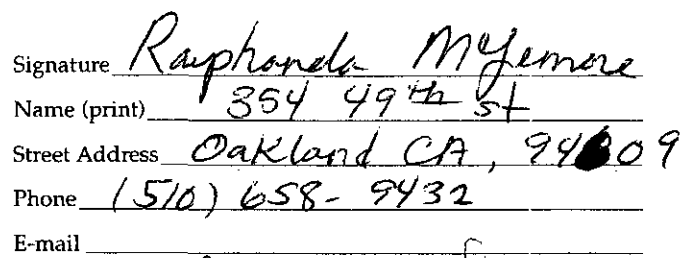 Signature Rayphanda McLemore
Name (print) 354 49th St
Street Address Oakland CA, 94609
Phone (510) 658-9432
E-mail